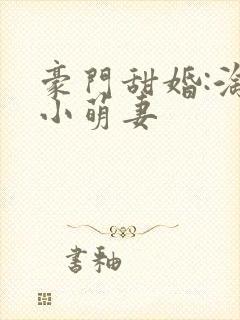 豪門甜婚:淘
小萌妻
書釉